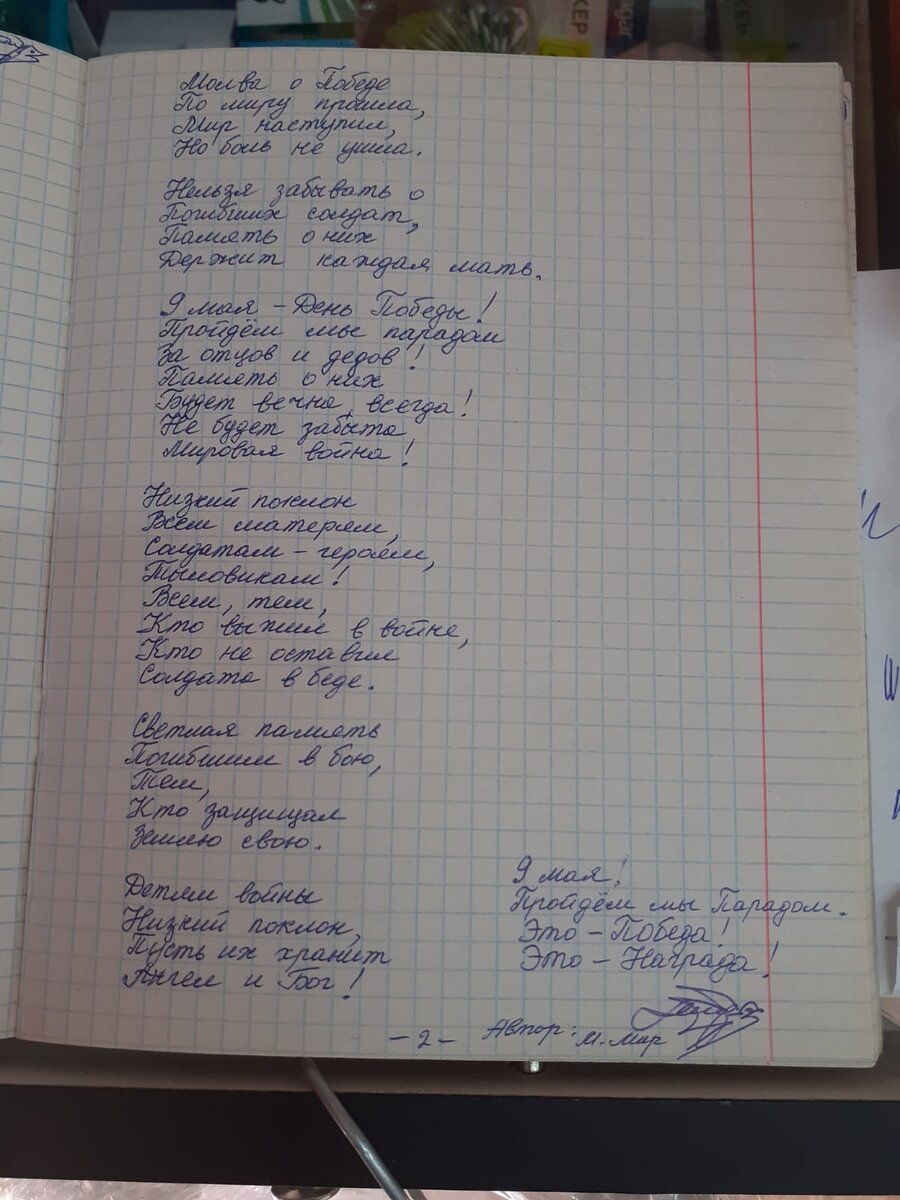 Молва о Победе
По миру прошла,
Мир наступил,
Но боль не ушла.
Нельзя забывать о
Погибших солдат,
Память о них
Держит каждая мать.
9 мая – День Победы!
Пройдём мы парадом
За отцов и дедов!
Память о них
Будет вечна, всегда!
Не будет забыта
Мировая война!
Низкий поклон
Всем матерям,
Солдатам – героям,
Тыловикам!
Всем, тем,
Кто выжил в войне,
Кто не оставил
Солдата в беде.
Светлая память
Погибшим в бою,
Тем,
Кто защищал
Землю свою.
Детям войны
Низкий поклон,
Пусть их хранит
Ангел и Бог!
9 мая!
Пройдём мы Парадом.
Это – Победа!
Это – Награда!
Автор: М. Мар
– 2 –
КЕР